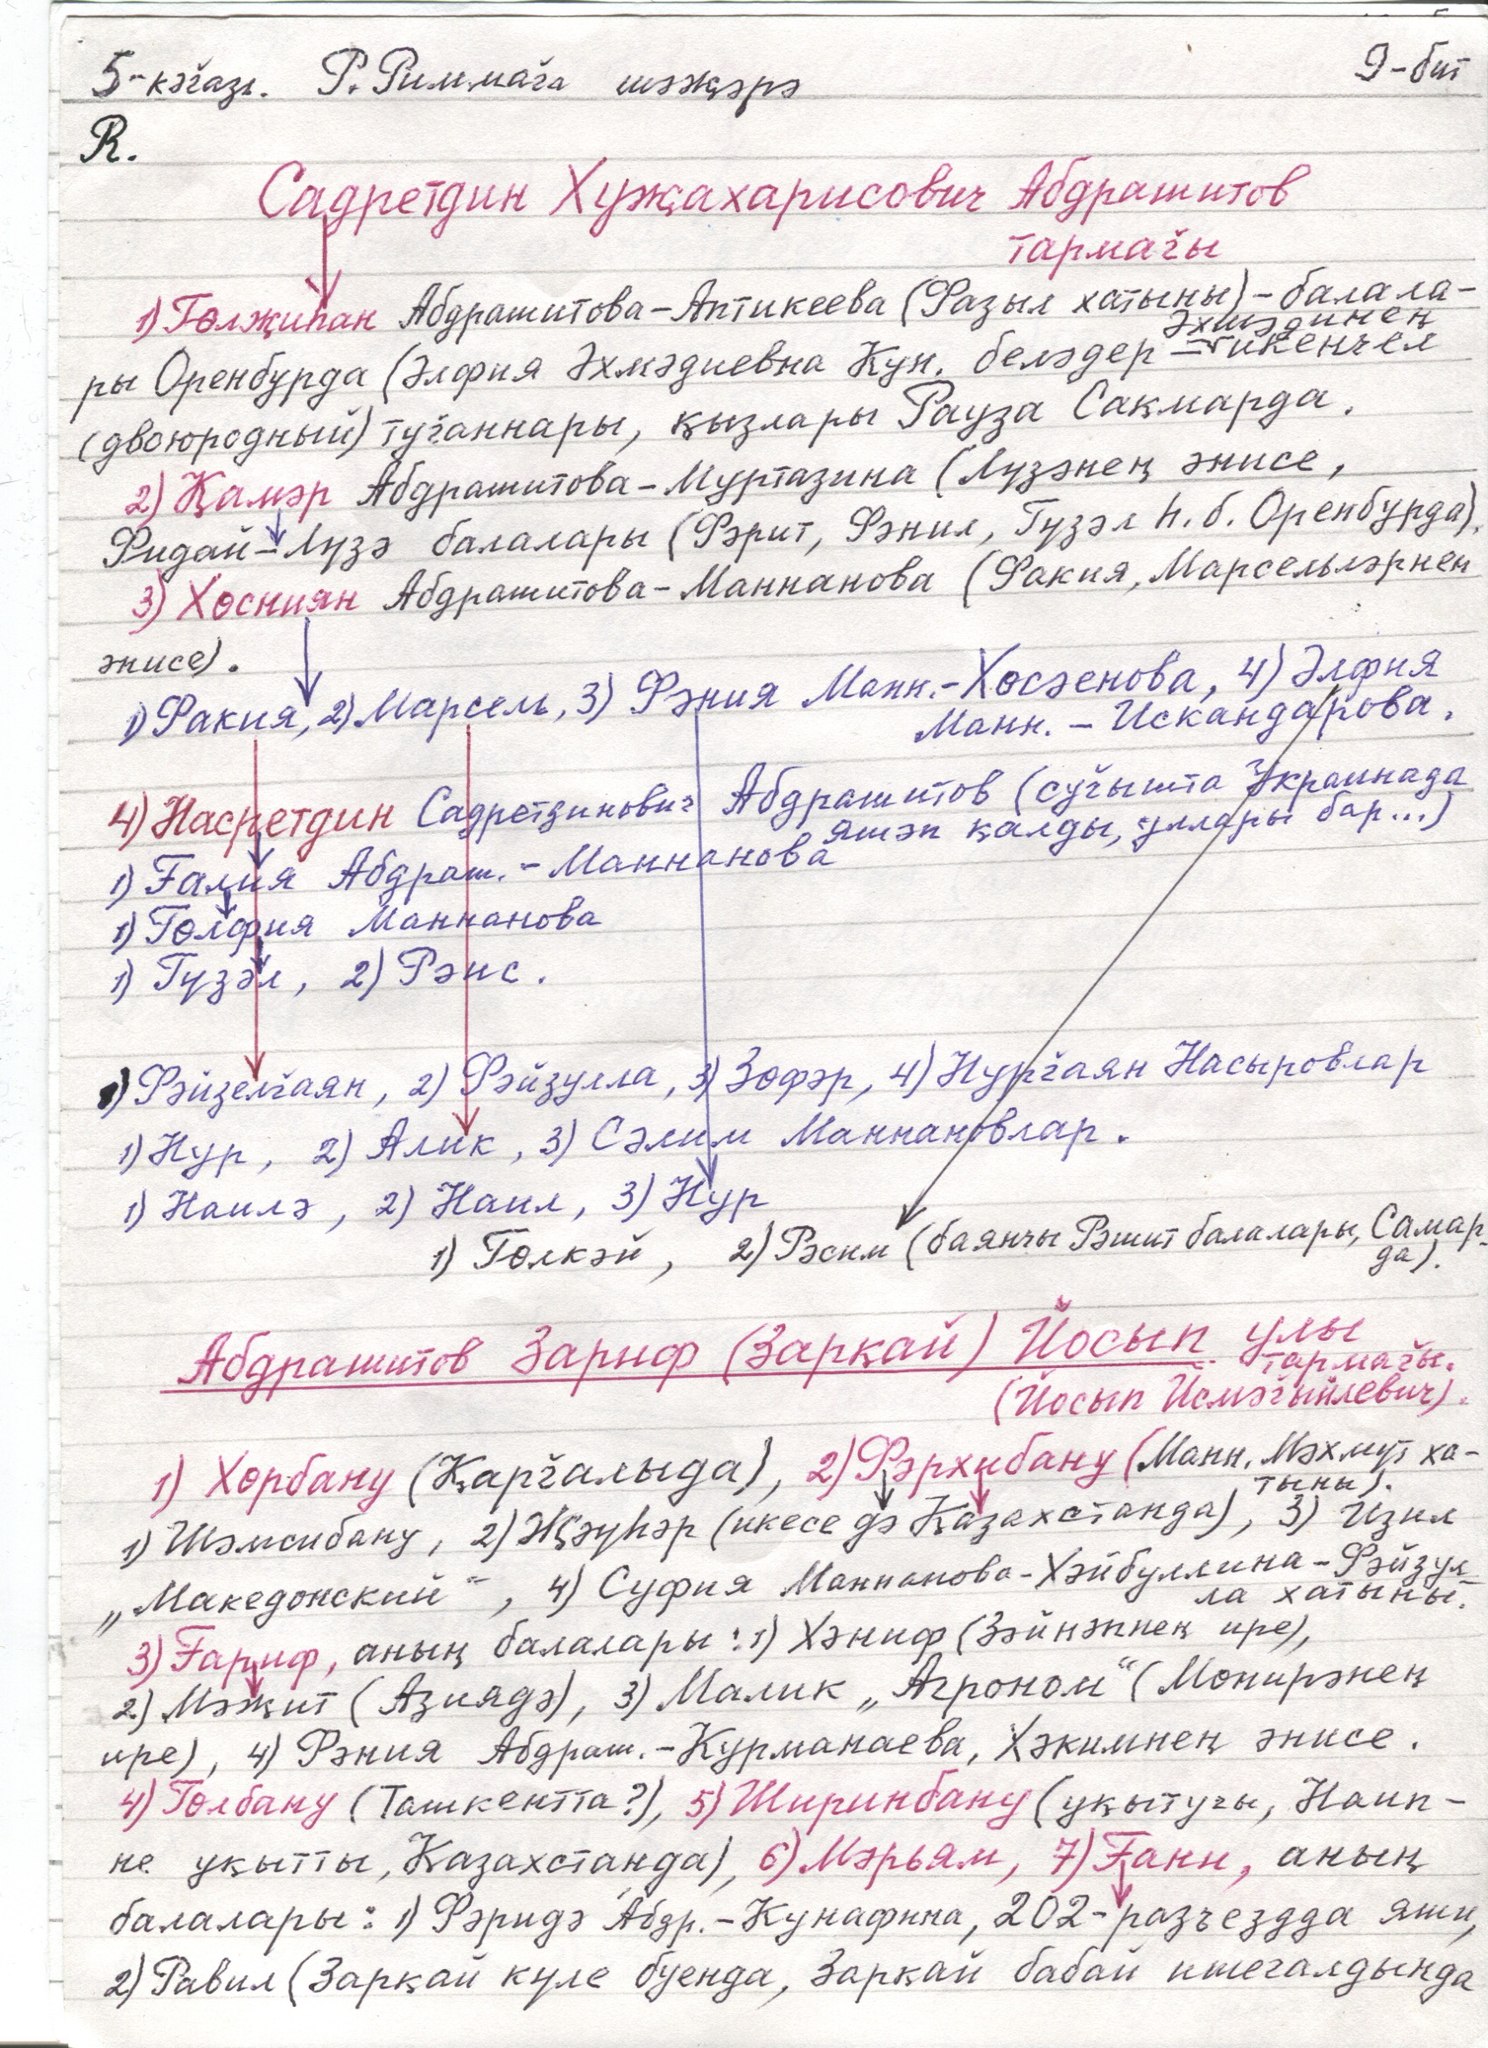 5-кәғазь. Р. Риммаға шәжәрә 9-бит
R.
Садретдин Хужахарисович Абдрашитов
тармағы
1) Гөлжиһан Абдрашитова-Аптикеева (Фазыл хатыны) - балала-
Әхмәдинең
ры Оренбурда (Әлфия Әхмәдиевна Кун. беләдер - икенчел
(двоюродный) туғаннары, қызлары Рауза Сақмарда.
2) Қамәр Абдрашитова-Муртазина (Лүзәнең әнисе,
Ридай-Лүзә балалары (Фәрит, Фәнил, Гүзәл һ.б. Оренбурда).
3) Хөсниян Абдрашитова-Маннанова (Факия, Марсельләрнең
әнисе).
1) Факия, 2) Марсель, 3) Фәния Манн.-Хөсәенова, 4) Әлфия
Манн. - Искандарова.
4) Насретдин Садретдинович Абдрашитов (суғышта Украинада
яшәп қалды, уллары бар...)
1) Ғалия Абдраш. - Маннанова
1) Гөлфия Маннанова
1) Гүзәл, 2) Рәис.
1) Фәйзелғаян, 2) Фәйзулла, 3) Зөфәр, 4) Нурғаян Насыровлар
1) Нур, 2) Алик, 3) Сәлим Маннановлар.
1) Наилә, 2) Наил, 3) Нур
1) Гөлкәй, 2) Рәсим (баянчы Рәшит балалары, Самар-
да).
Абдрашитов Зариф (Зарқай) Йосып улы
тармағы.
(Йосып Йсмәғыйлевич).
1) Хөрбану (Қарғалыда), 2) Фәрхибану (Манн. Мәхмүт ха-
тыны).
1) Шәмсибану, 2) Җәүһәр (икесе дә Қазахстанда), 3) Изил
„Македонский“, 4) Суфия Маннанова-Хәйбуллина-Фәйзул
ла хатыны.
3) Ғариф, аның балалары: 1) Хәниф (Зәйнәпнең ире),
2) Мәжит (Азиядә), 3) Малик „Агроном“ (Мөнирәнең
ире), 4) Рәния Абдраш.-Курманаева, Хәкимнең әнисе.
4) Гөлбану (Ташкентта?), 5) Ширинбану (уқытучы, Наип-
не уқытты, Қазахстанда), 6) Мәрьям, 7) Ғани, аның
балалары: 1) Фәридә Абдр.-Кунафина, 202-разъездда яши,
2) Равил (Зарқай күле буенда, Зарқай бабай ишегалдында